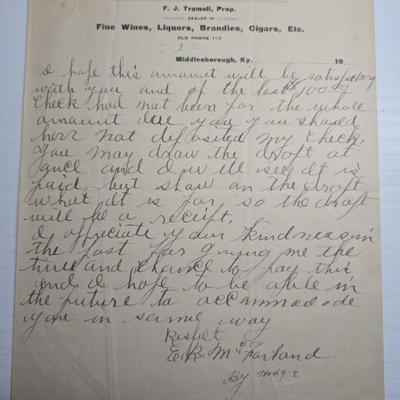 F. J. Tramell, Prop.
DEALER IN
Fine Wines, Liquors, Brandies, Cigars, Etc.
OLD PHONE 110
2
Middlesborough, Ky. 19
I hope this amount will be satisfactory
with you and of the last $100.00
check had not been for the whole
amount due you you should
have not deposited my check.
You may draw the draft at
once and I will see it is
paid but show on the draft
what it is for, so the draft
will be a receipt.
I appreciate your kindness in
the past for giving me the
time and chance to pay this
and I hope to be able in
the future to accommodode
you in same way
Respect
E. B. McFarland
By